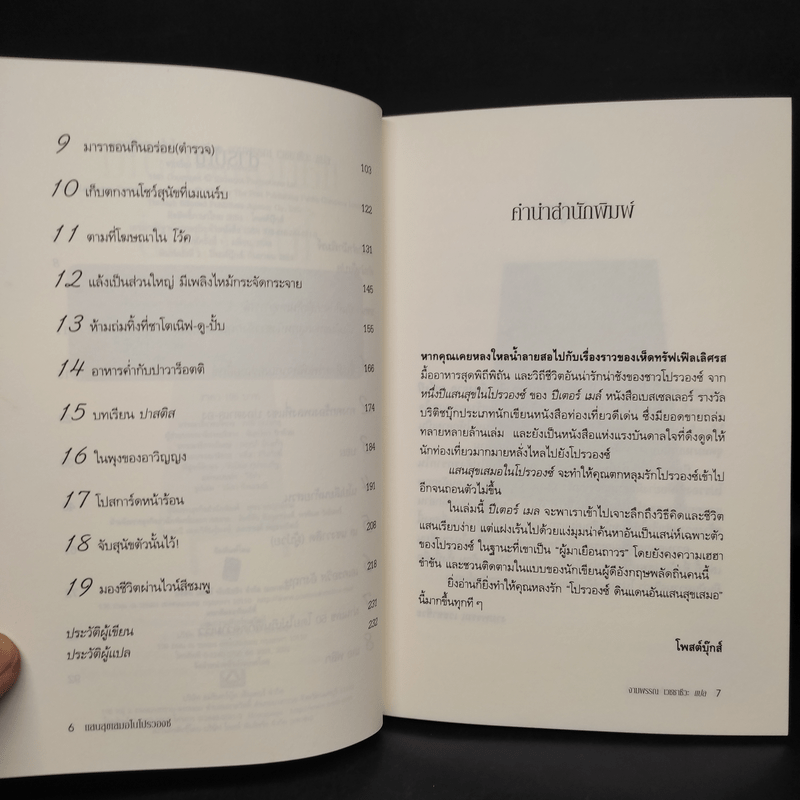 9 มาราธอนกินอร่อย(ตำรวจ) 103
10 เก็บตกงานโชว์สุนัขที่เมแนร์บ 122
11 ตามที่โฆษณาใน โว้ค 131
12 แล้งเป็นส่วนใหญ่ มีเพลิงไหม้กระจัดกระจาย 145
13 ห้ามถ่มทิ้งที่ชาโตเนิฟ-ดู-ปั๊บ 155
14 อาหารค่ำกับปาวาร็อตติ 166
15 บทเรียน ปาสติส 174
16 ในพุงของอาวิญญง 184
17 โปสการ์ดหน้าร้อน 191
18 จับสุนัขตัวนั้นไว้! 208
19 มองชีวิตผ่านไวน์สีชมพู 218
ประวัติผู้เขียน 231
ประวัติผู้แปล 232
6 แสนสุขเสมอในโปรวองซ์
คำนำสำนักพิมพ์
หากคุณเคยหลงใหลน้ำลายสอไปกับเรื่องราวของเห็ดทรัฟเฟิลเลิศรส
มื้ออาหารสุดพิถีพิถัน และวิถีชีวิตอันน่ารักน่าชังของชาวโปรวองซ์ จาก
หนึ่งปีแสนสุขในโปรวองซ์ ของ ปีเตอร์ เมล์ หนังสือเบสเซลเลอร์ รางวัล
บริติชบุ๊กประเภทนักเขียนหนังสือท่องเที่ยวดีเด่น ซึ่งมียอดขายถล่ม
ทลายหลายล้านเล่ม และยังเป็นหนังสือแห่งแรงบันดาลใจที่ดึงดูดให้
นักท่องเที่ยวมากมายหลั่งไหลไปยังโปรวองซ์
แสนสุขเสมอในโปรวองซ์ จะทำให้คุณตกหลุมรักโปรวองซ์เข้าไป
อีกจนถอนตัวไม่ขึ้น
ในเล่มนี้ ปีเตอร์ เมล จะพาเราเข้าไปเจาะลึกถึงวิธีคิดและชีวิต
แสนเรียบง่าย แต่แฝงเร้นไปด้วยแง่มุมน่าค้นหาอันเป็นเสน่ห์เฉพาะตัว
ของโปรวองซ์ ในฐานะที่เขาเป็น “ผู้มาเยือนถาวร” โดยยังคงความเฮฮา
ขำขัน และชวนติดตามในแบบของนักเขียนผู้ดีอังกฤษพลัดถิ่นคนนี้
ยิ่งอ่านก็ยิ่งทำให้คุณหลงรัก “โปรวองซ์ ดินแดนอันแสนสุขเสมอ”
นี้มากขึ้นทุกที ๆ
โพสต์บุ๊กส์
งามพรรณ เวชชาชีวะ แปล 7